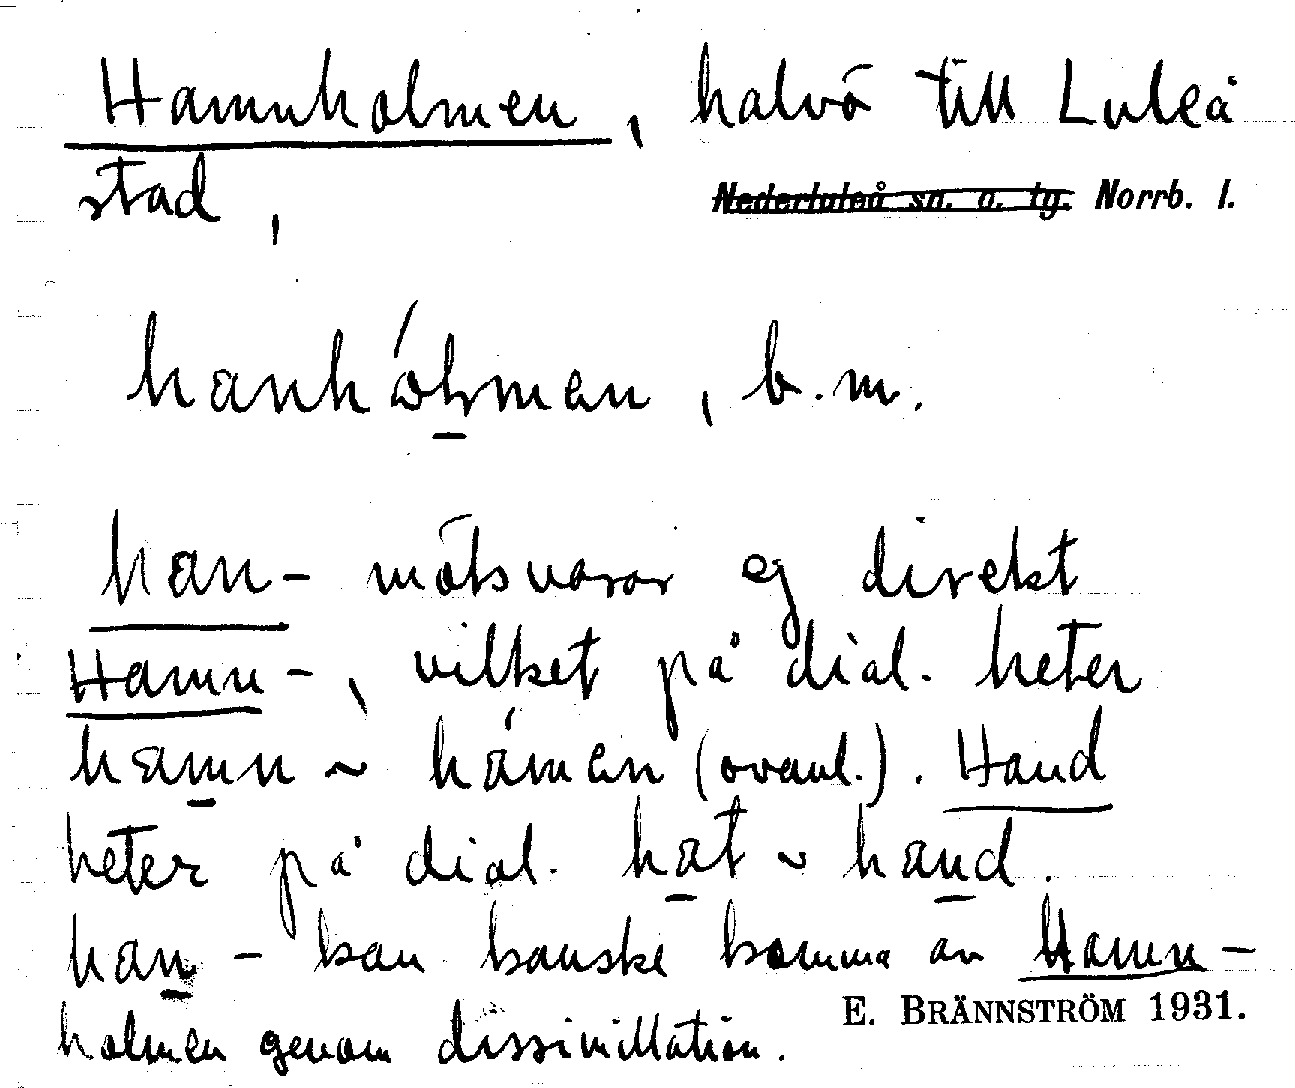 Hamnholmen, halvö till Luleå
stad, Nederluleå sn. o. tg. Norrb. l.
hanhólmen, b.m.
han- motsvarar ej direkt
Hamn-, vilket på dial. heter
hamn ~ hámen (ovanl.). Hand
heter på dial. hat ~ hand.
han- kan kanske komma av Hamn-
E. BRÄNNSTRÖM 1931.
holmen genom dissimillation.